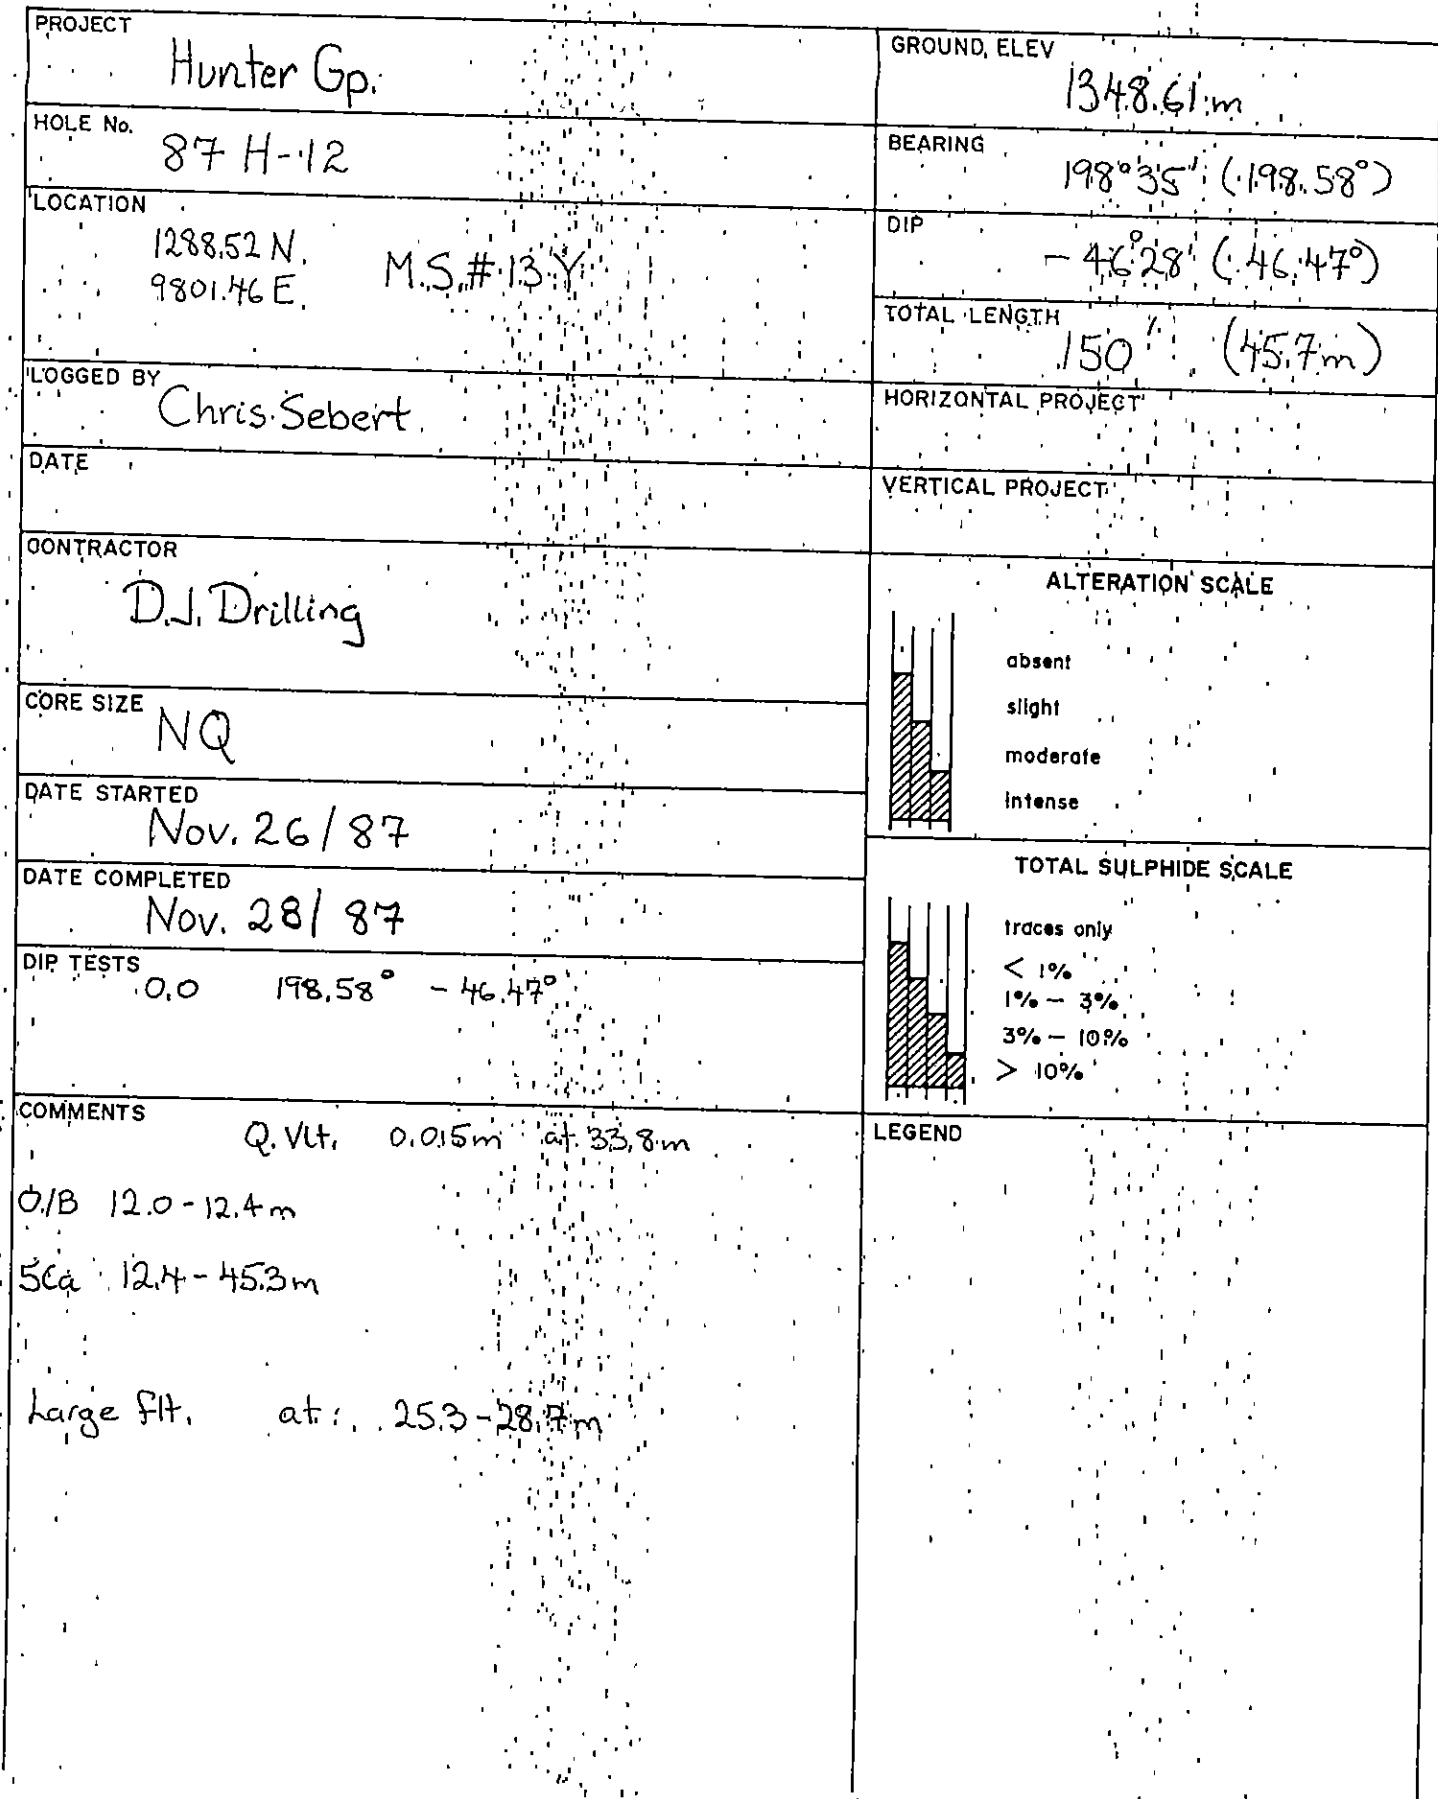 PROJECT
Hunter Gp.
HOLE No.
87 H-12
LOCATION
1288.52 N.
9801.46 E.
M.S.# 13 Y
LOGGED BY
Chris Sebert
DATE
CONTRACTOR
D.J. Drilling
CORE SIZE
NQ
DATE STARTED
Nov. 26 / 87
DATE COMPLETED
Nov. 28 / 87
DIP TESTS
0.0 198.58° - 46.47°
COMMENTS
Q. Vlt. 0.015m at 33.8m
O/B 12.0 - 12.4 m
5Ca 12.4 - 45.3 m
Large flt. at: 25.3 - 28.7 m
GROUND, ELEV
1348.61 m
BEARING
198°35' (198.58°)
DIP
- 46°28' (46.47°)
TOTAL LENGTH
150' (45.7m)
HORIZONTAL PROJECT
VERTICAL PROJECT
ALTERATION SCALE
absent
slight
moderate
intense
TOTAL SULPHIDE SCALE
traces only
< 1%
1% - 3%
3% - 10%
> 10%
LEGEND